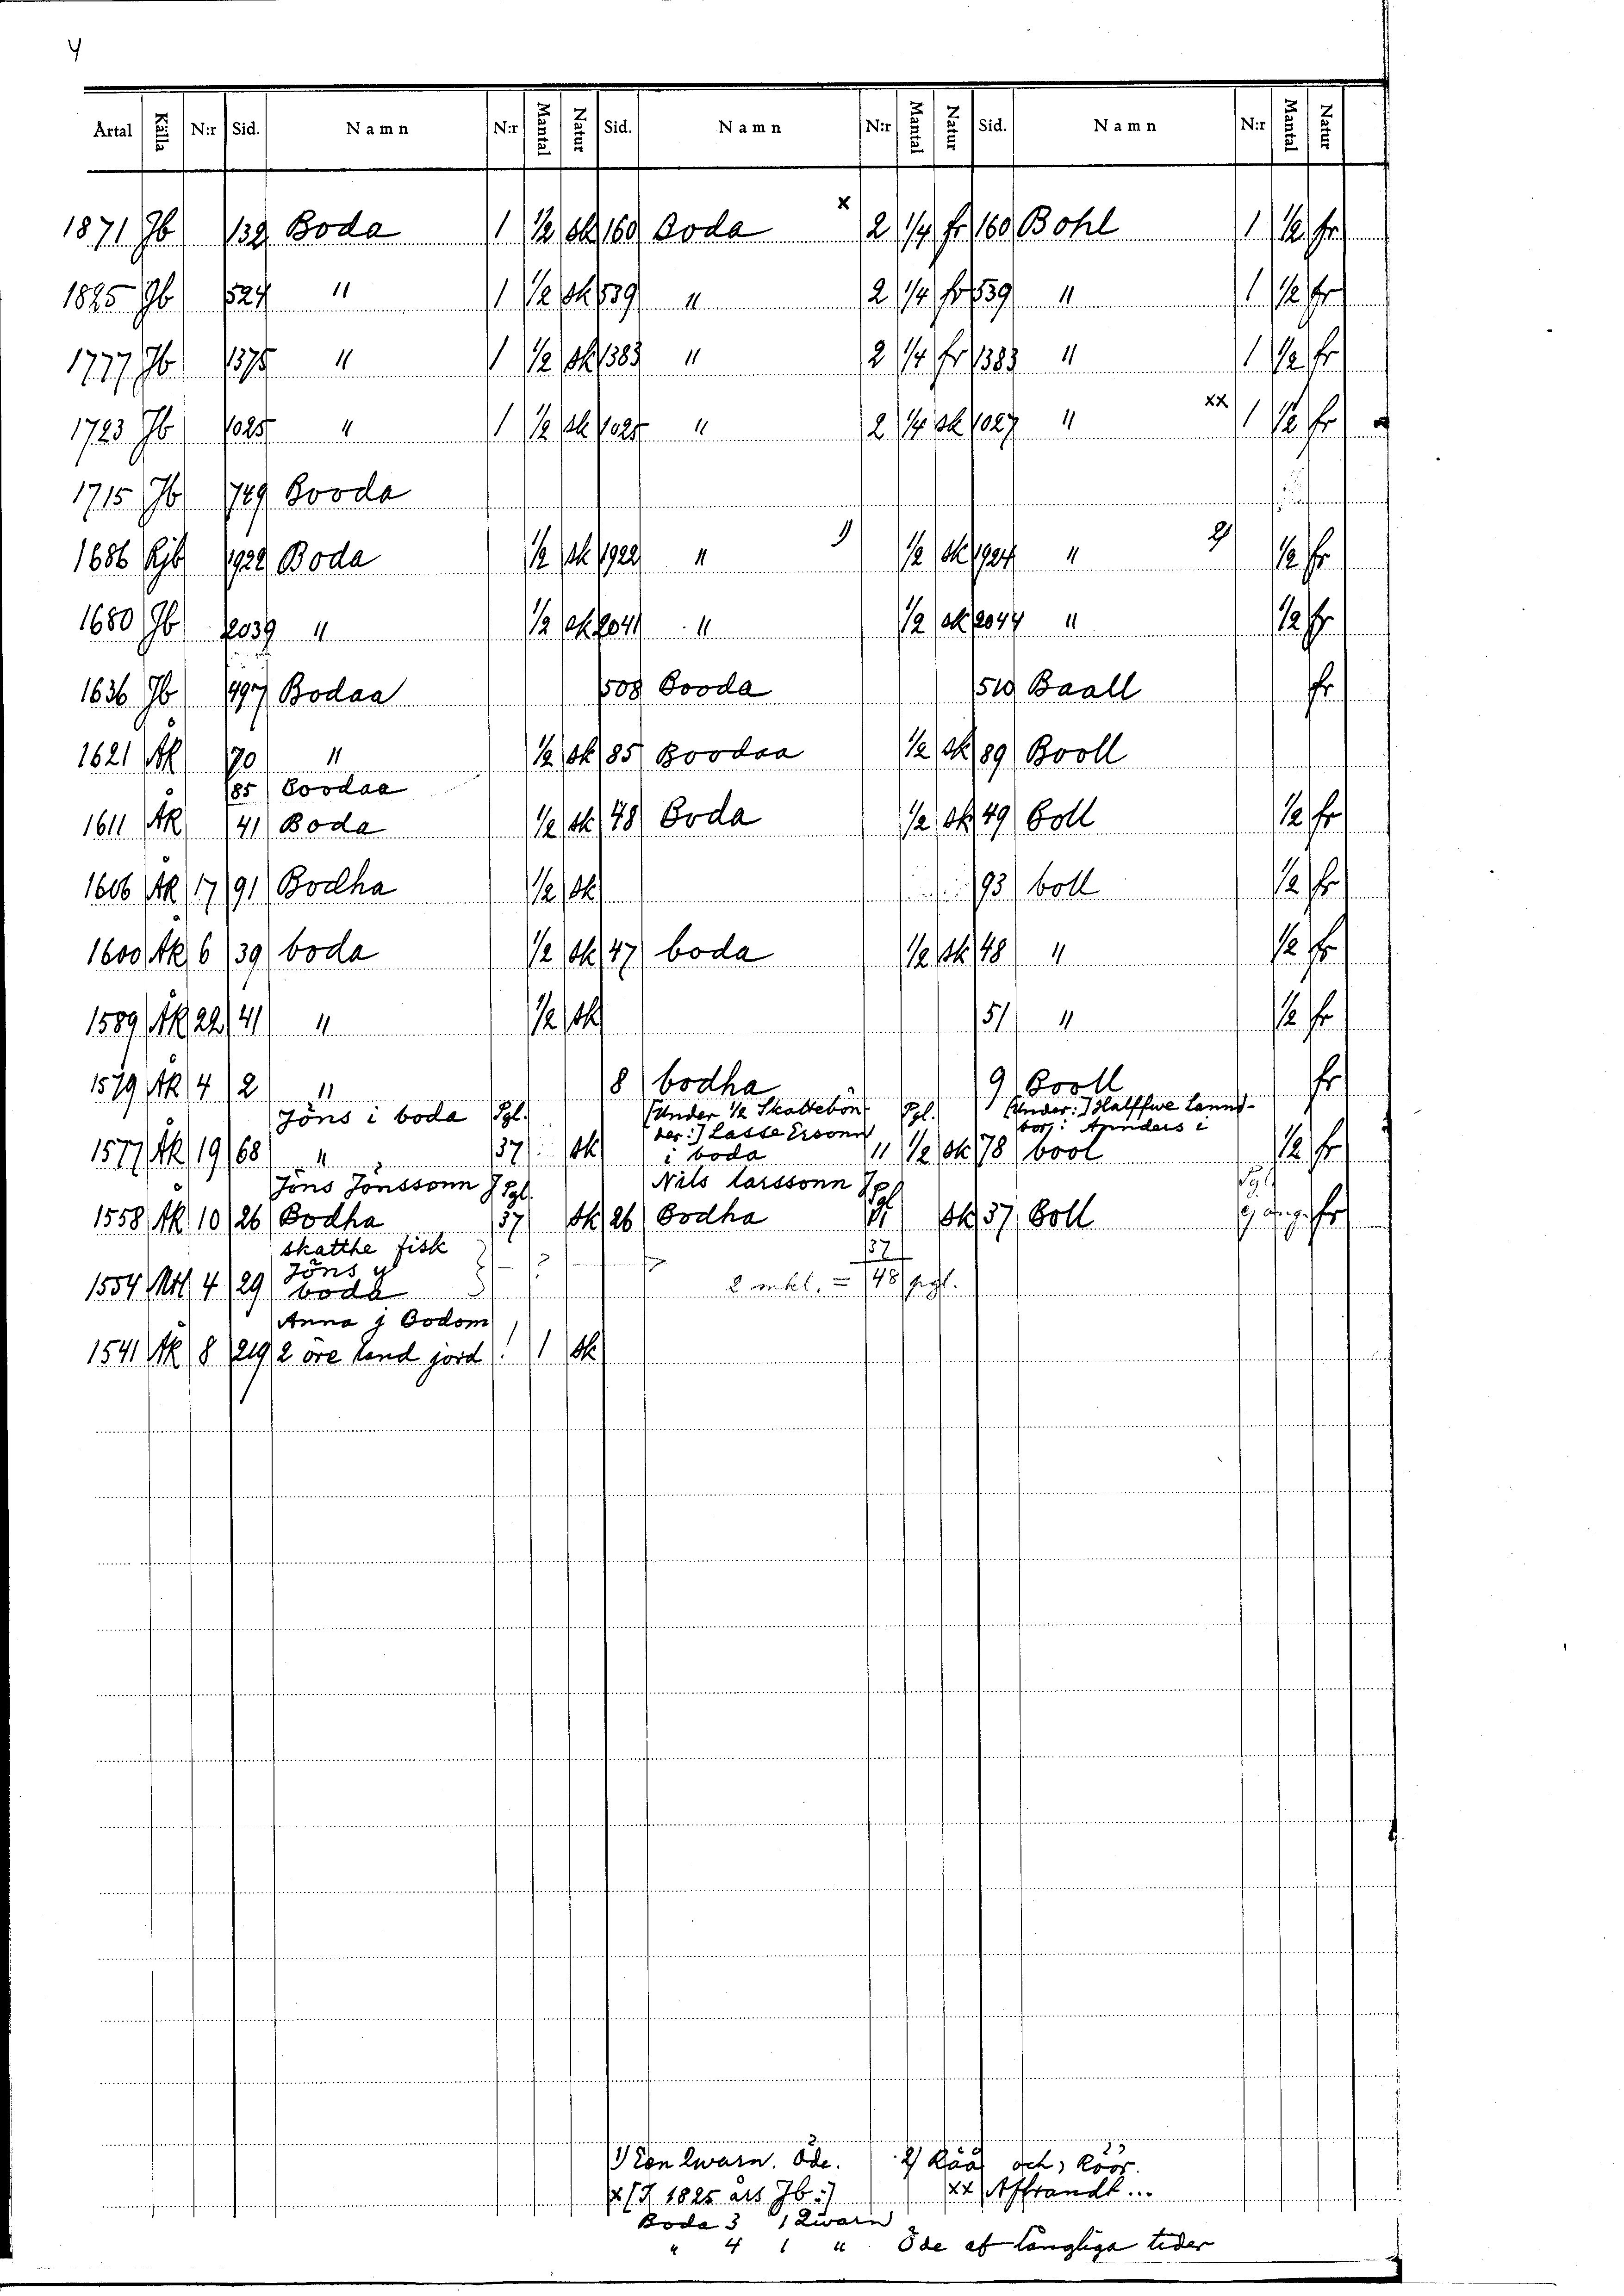 4
Årtal Källa N:r Sid. Namn N:r Mantal Natur Sid. Namn N:r Mantal Natur Sid. Namn N:r Mantal Natur
1871 Jb 132 Boda 1 1/2 sk 160 Boda x 2 1/4 fr 160 Bohl 1 1/2 fr
1825 Jb 524 " 1 1/2 sk 539 " 2 1/4 fr 539 " 1 1/2 fr
1777 Jb 1375 " 1 1/2 sk 1383 " 2 1/4 fr 1383 " 1 1/2 fr
1723 Jb 1025 " 1 1/2 sk 1025 " 2 1/4 sk 1027 " xx 1 1/2 fr
1715 Jb 749 Booda
1686 Rjb 1922 Boda 1/2 sk 1922 " 1) 1/2 sk 1924 " 2) 1/2 fr
1680 Jb 2039 " 1/2 sk 2041 " 1/2 sk 2044 " 1/2 fr
1636 Jb 497 Bodaa 508 Booda 510 Baall fr
1621 ÅK 70 " 1/2 sk 85 Boodaa 1/2 sk 89 Booll
85 Boodaa
1611 ÅK 41 Boda 1/2 sk 48 Boda 1/2 sk 49 Boll 1/2 fr
1606 ÅK 17 91 Bodha 1/2 sk 93 boll 1/2 fr
1600 ÅK 6 39 boda 1/2 sk 47 boda 1/2 sk 48 " 1/2 fr
1589 ÅK 22 41 " 1/2 sk 51 " 1/2 fr
1579 ÅK 4 2 " 8 bodha 9 Booll fr
Jöns i boda Pgl. [Under 1/2 Skattebön- Pgl. [Under:] Halffwe Lannd-
der:] Lasse Ersonn bor: Annders i
1577 ÅK 19 68 " 37 sk i boda 11 1/2 sk 78 bool 1/2 fr
Jöns Jönssonn J Pgl. Nils larssonn J Pgl. Pgl.
1558 ÅK 10 26 Bodha 37 sk 26 Bodha 11 sk 37 Boll Ej ang. fr
skatthe fisk 37
Jöns y - ?
1554 Mtl 4 29 boda 2 mkl. = 48 pgl.
Anna j Bodom
1541 ÅK 8 219 2 öre land jord ! 1 sk
1) Een Qwarn. Öde. 2) Råå och, Röör.
x [I 1825 års Jb:] xx Affrandt...
Boda 3 1 Qwarn
" 4 1 " Öde af långliga tider